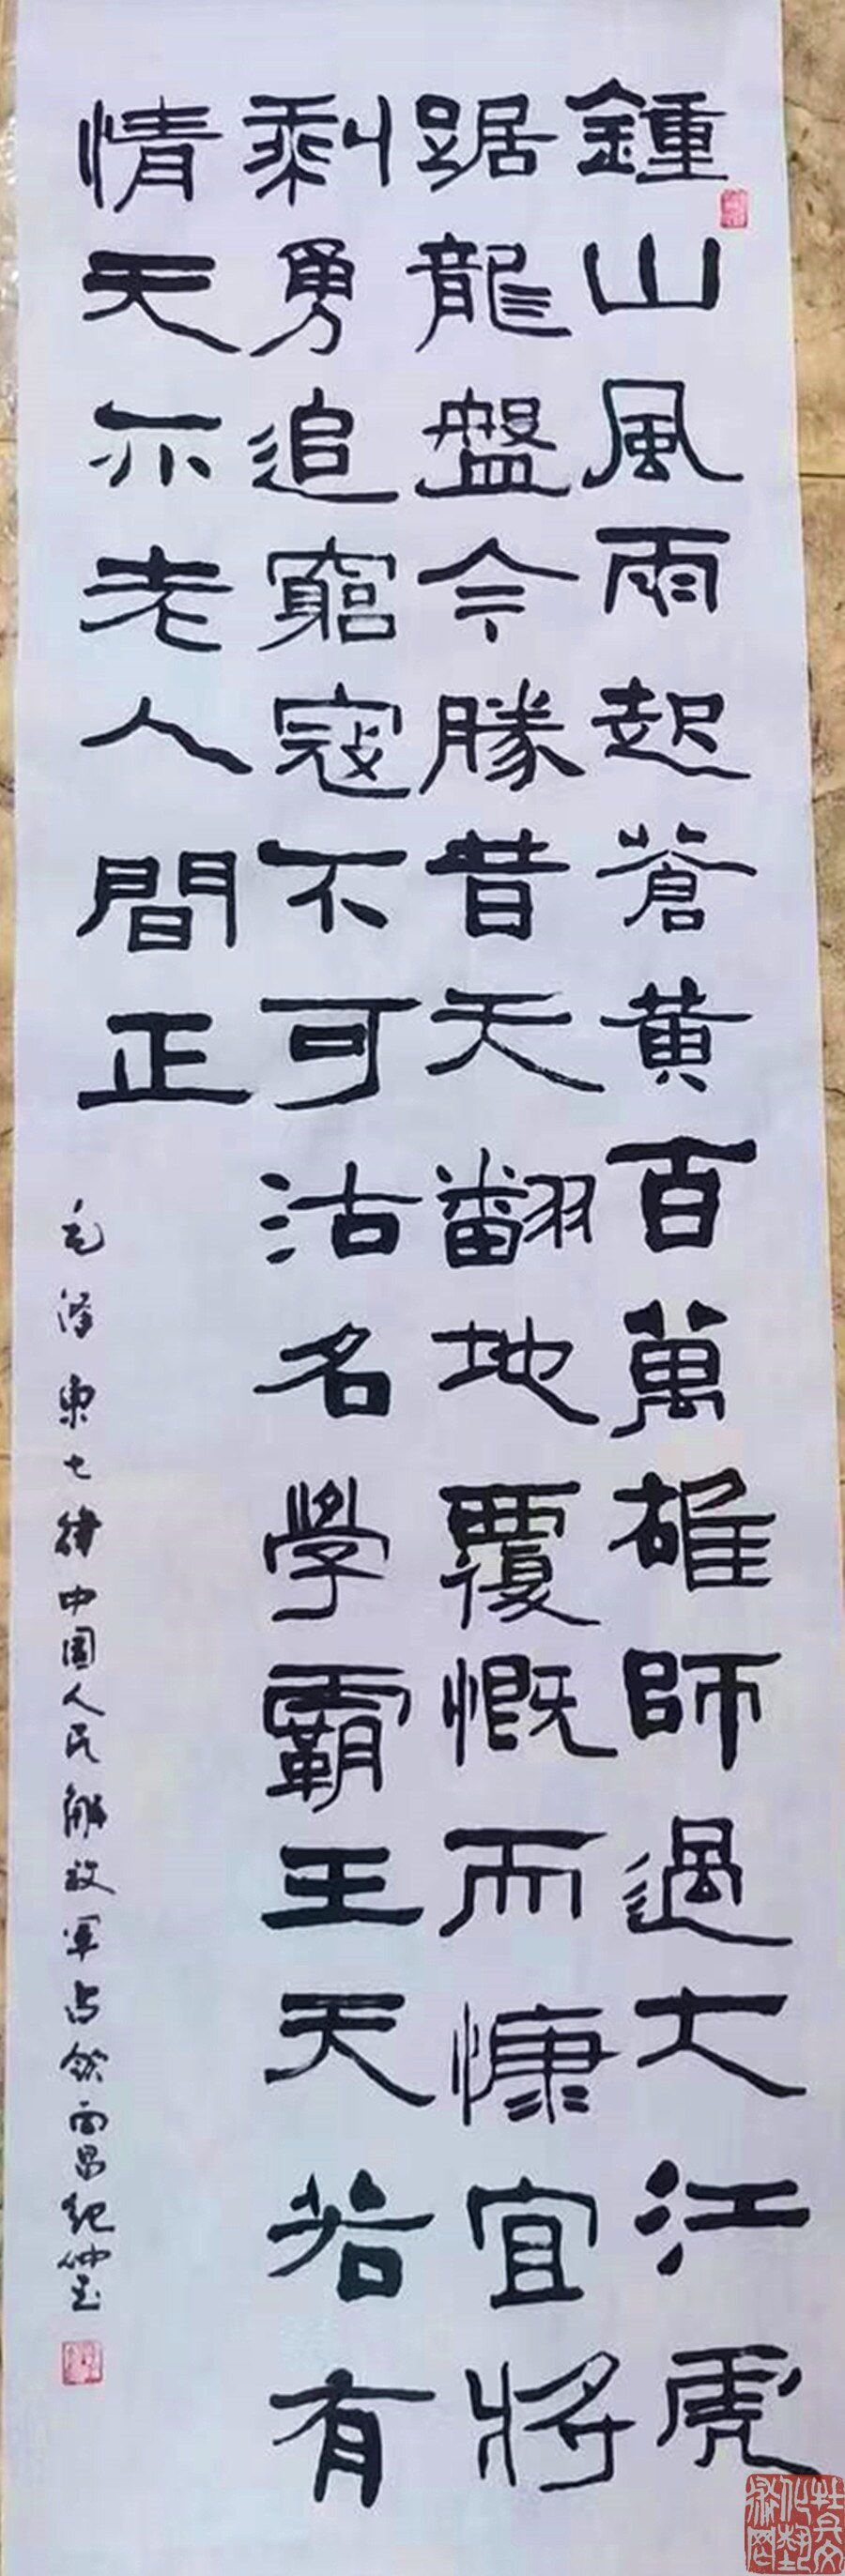 鍾山風雨起蒼黃百萬雄師過大江虎
踞龍盤今勝昔天翻地覆慨而慷宜將
剩勇追窮寇不可沽名學霸王天若有
情天亦老人間正
毛澤東七律中国人民解放军占领南昌纪仲玉